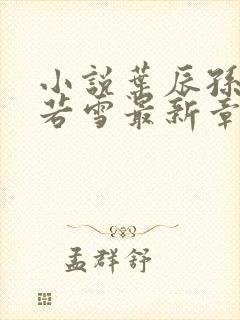 小説葉辰孫
若雪最新章
孟群舒